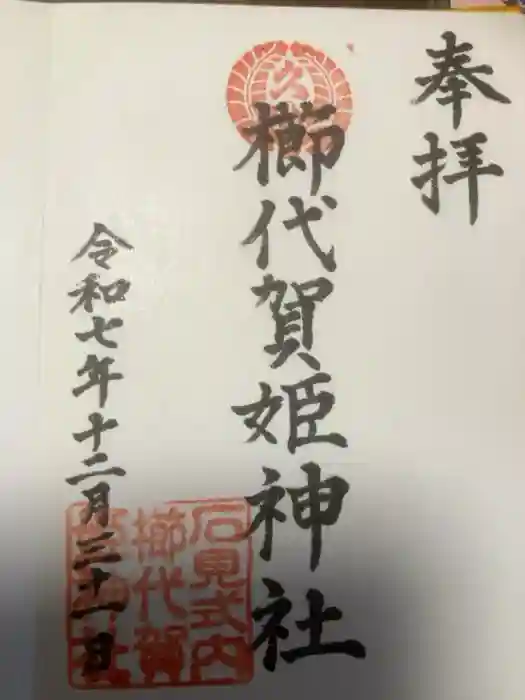 奉拝
櫛代賀姫神社
令和七年十二月三十一日
石見式内
櫛代賀
姫神社